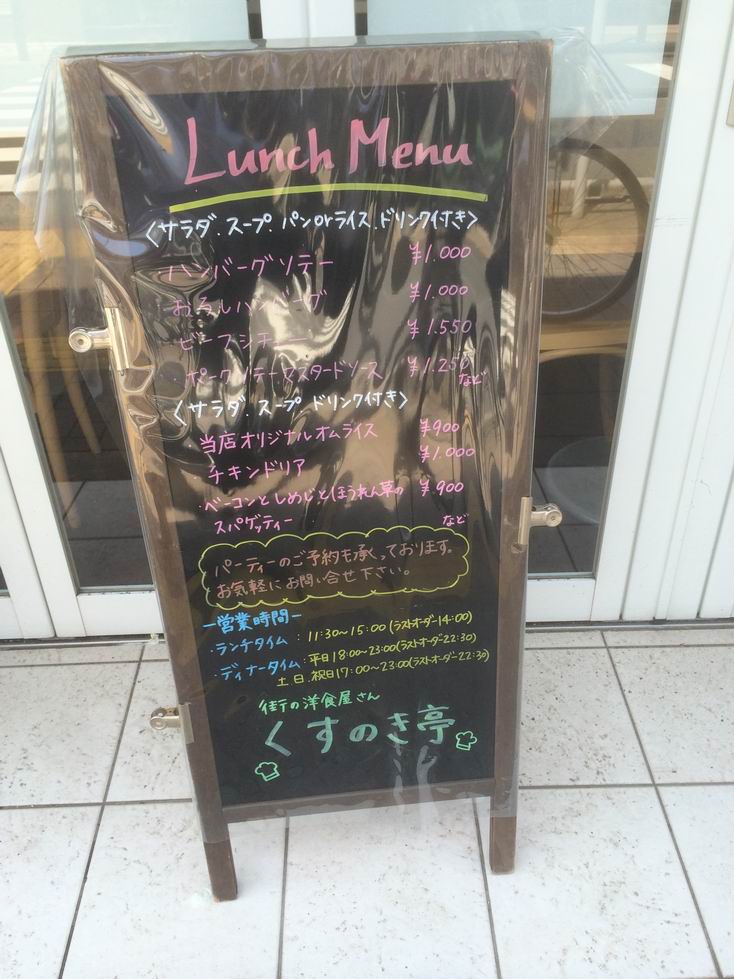 Lunch Menu
<サラダ.スープ.パンorライス.ドリンク付き>
ハンバーグソテー ¥1.000
おろしハンバーグ ¥1.000
ビーフシチュー ¥1.550
・ポークソテーマスタードソース ¥1.250
など
<サラダ.スープ.ドリンク付き>
当店オリジナルオムライス ¥900
チキンドリア ¥1.000
・ベーコンとしめじとほうれん草の ¥900
スパゲッティー など
パーティーのご予約も承っております。
お気軽にお問い合せ下さい。
ー営業時間ー
・ランチタイム : 11:30〜15:00(ラストオーダー14:00)
・ディナータイム : 平日18:00〜23:00(ラストオーダー22:30)
土日.祝日17:00〜23:00(ラストオーダー22:30)
街の洋食屋さん
くすのき亭